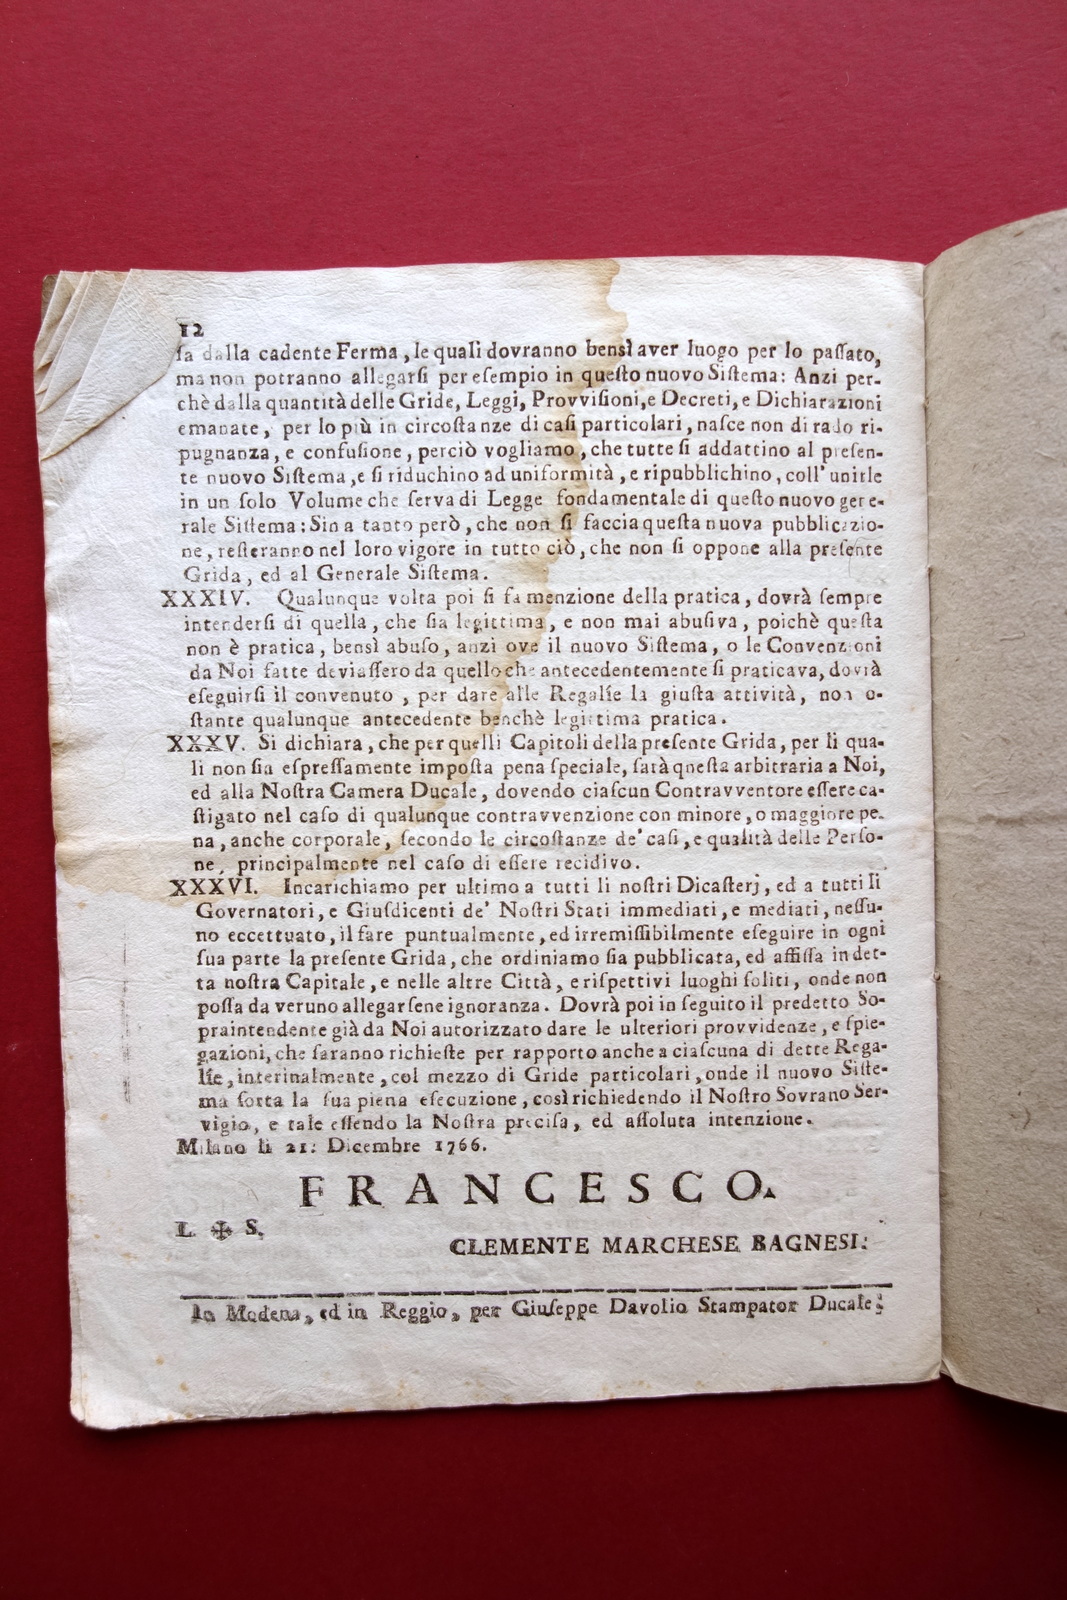 12
sa dalla cadente Ferma, le quali dovranno bensì aver luogo per lo passato,
ma non potranno allegarsi per esempio in questo nuovo Sistema: Anzi per-
chè dalla quantità delle Gride, Leggi, Provvisioni, e Decreti, e Dichiarazioni
emanate, per lo più in circostanze di casi particolari, nasce non di rado ri-
pugnanza, e confusione, perciò vogliamo, che tutte si addattino al presen-
te nuovo Sistema, e si riduchino ad uniformità, e ripubblichino, coll' unirle
in un solo Volume che serva di Legge fondamentale di questo nuovo gene-
rale Sistema: Sin a tanto però, che non si faccia questa nuova pubblicazio-
ne, resteranno nel loro vigore in tutto ciò, che non si oppone alla presente
Grida, ed al Generale Sistema.
XXXIV. Qualunque volta poi si fa menzione della pratica, dovrà sempre
intendersi di quella, che sia legittima, e non mai abusiva, poichè questa
non è pratica, bensì abuso, anzi ove il nuovo Sistema, o le Convenzioni
da Noi fatte deviassero da quello che antecedentemente si praticava, dovrà
eseguirsi il convenuto, per dare alle Regalìe la giusta attività, non o-
stante qualunque antecedente benchè legittima pratica.
XXXV. Si dichiara, che per quelli Capitoli della presente Grida, per li qua-
li non sia espressamente imposta pena speciale, sarà questa arbitraria a Noi,
ed alla Nostra Camera Ducale, dovendo ciascun Contravventore essere ca-
stigato nel caso di qualunque contravvenzione con minore, o maggiore pe-
na, anche corporale, secondo le circostanze de' casi, e qualità delle Perso-
ne, principalmente nel caso di essere recidivo.
XXXVI. Incarichiamo per ultimo a tutti li nostri Dicasterj, ed a tutti li
Governatori, e Giusdicenti de' Nostri Stati immediati, e mediati, nessu-
no eccettuato, il fare puntualmente, ed irremissibilmente eseguire in ogni
sua parte la presente Grida, che ordiniamo sia pubblicata, ed affissa in det-
ta nostra Capitale, e nelle altre Città, e rispettivi luoghi soliti, onde non
possa da veruno allegarsene ignoranza. Dovrà poi in seguito il predetto So-
praintendente già da Noi autorizzato dare le ulteriori provvidenze, e spie-
gazioni, che saranno richieste per rapporto anche a ciascuna di dette Rega-
lìe, interinalmente, col mezzo di Gride particolari, onde il nuovo Siste-
ma sorta la sua piena esecuzione, così richiedendo il Nostro Sovrano Ser-
vigio, e tale essendo la Nostra precisa, ed assoluta intenzione.
Milano li 21: Dicembre 1766.
FRANCESCO.
L. ✠ S.
CLEMENTE MARCHESE BAGNESI.
In Modena, ed in Reggio, per Giuseppe Davolio Stampator Ducale.